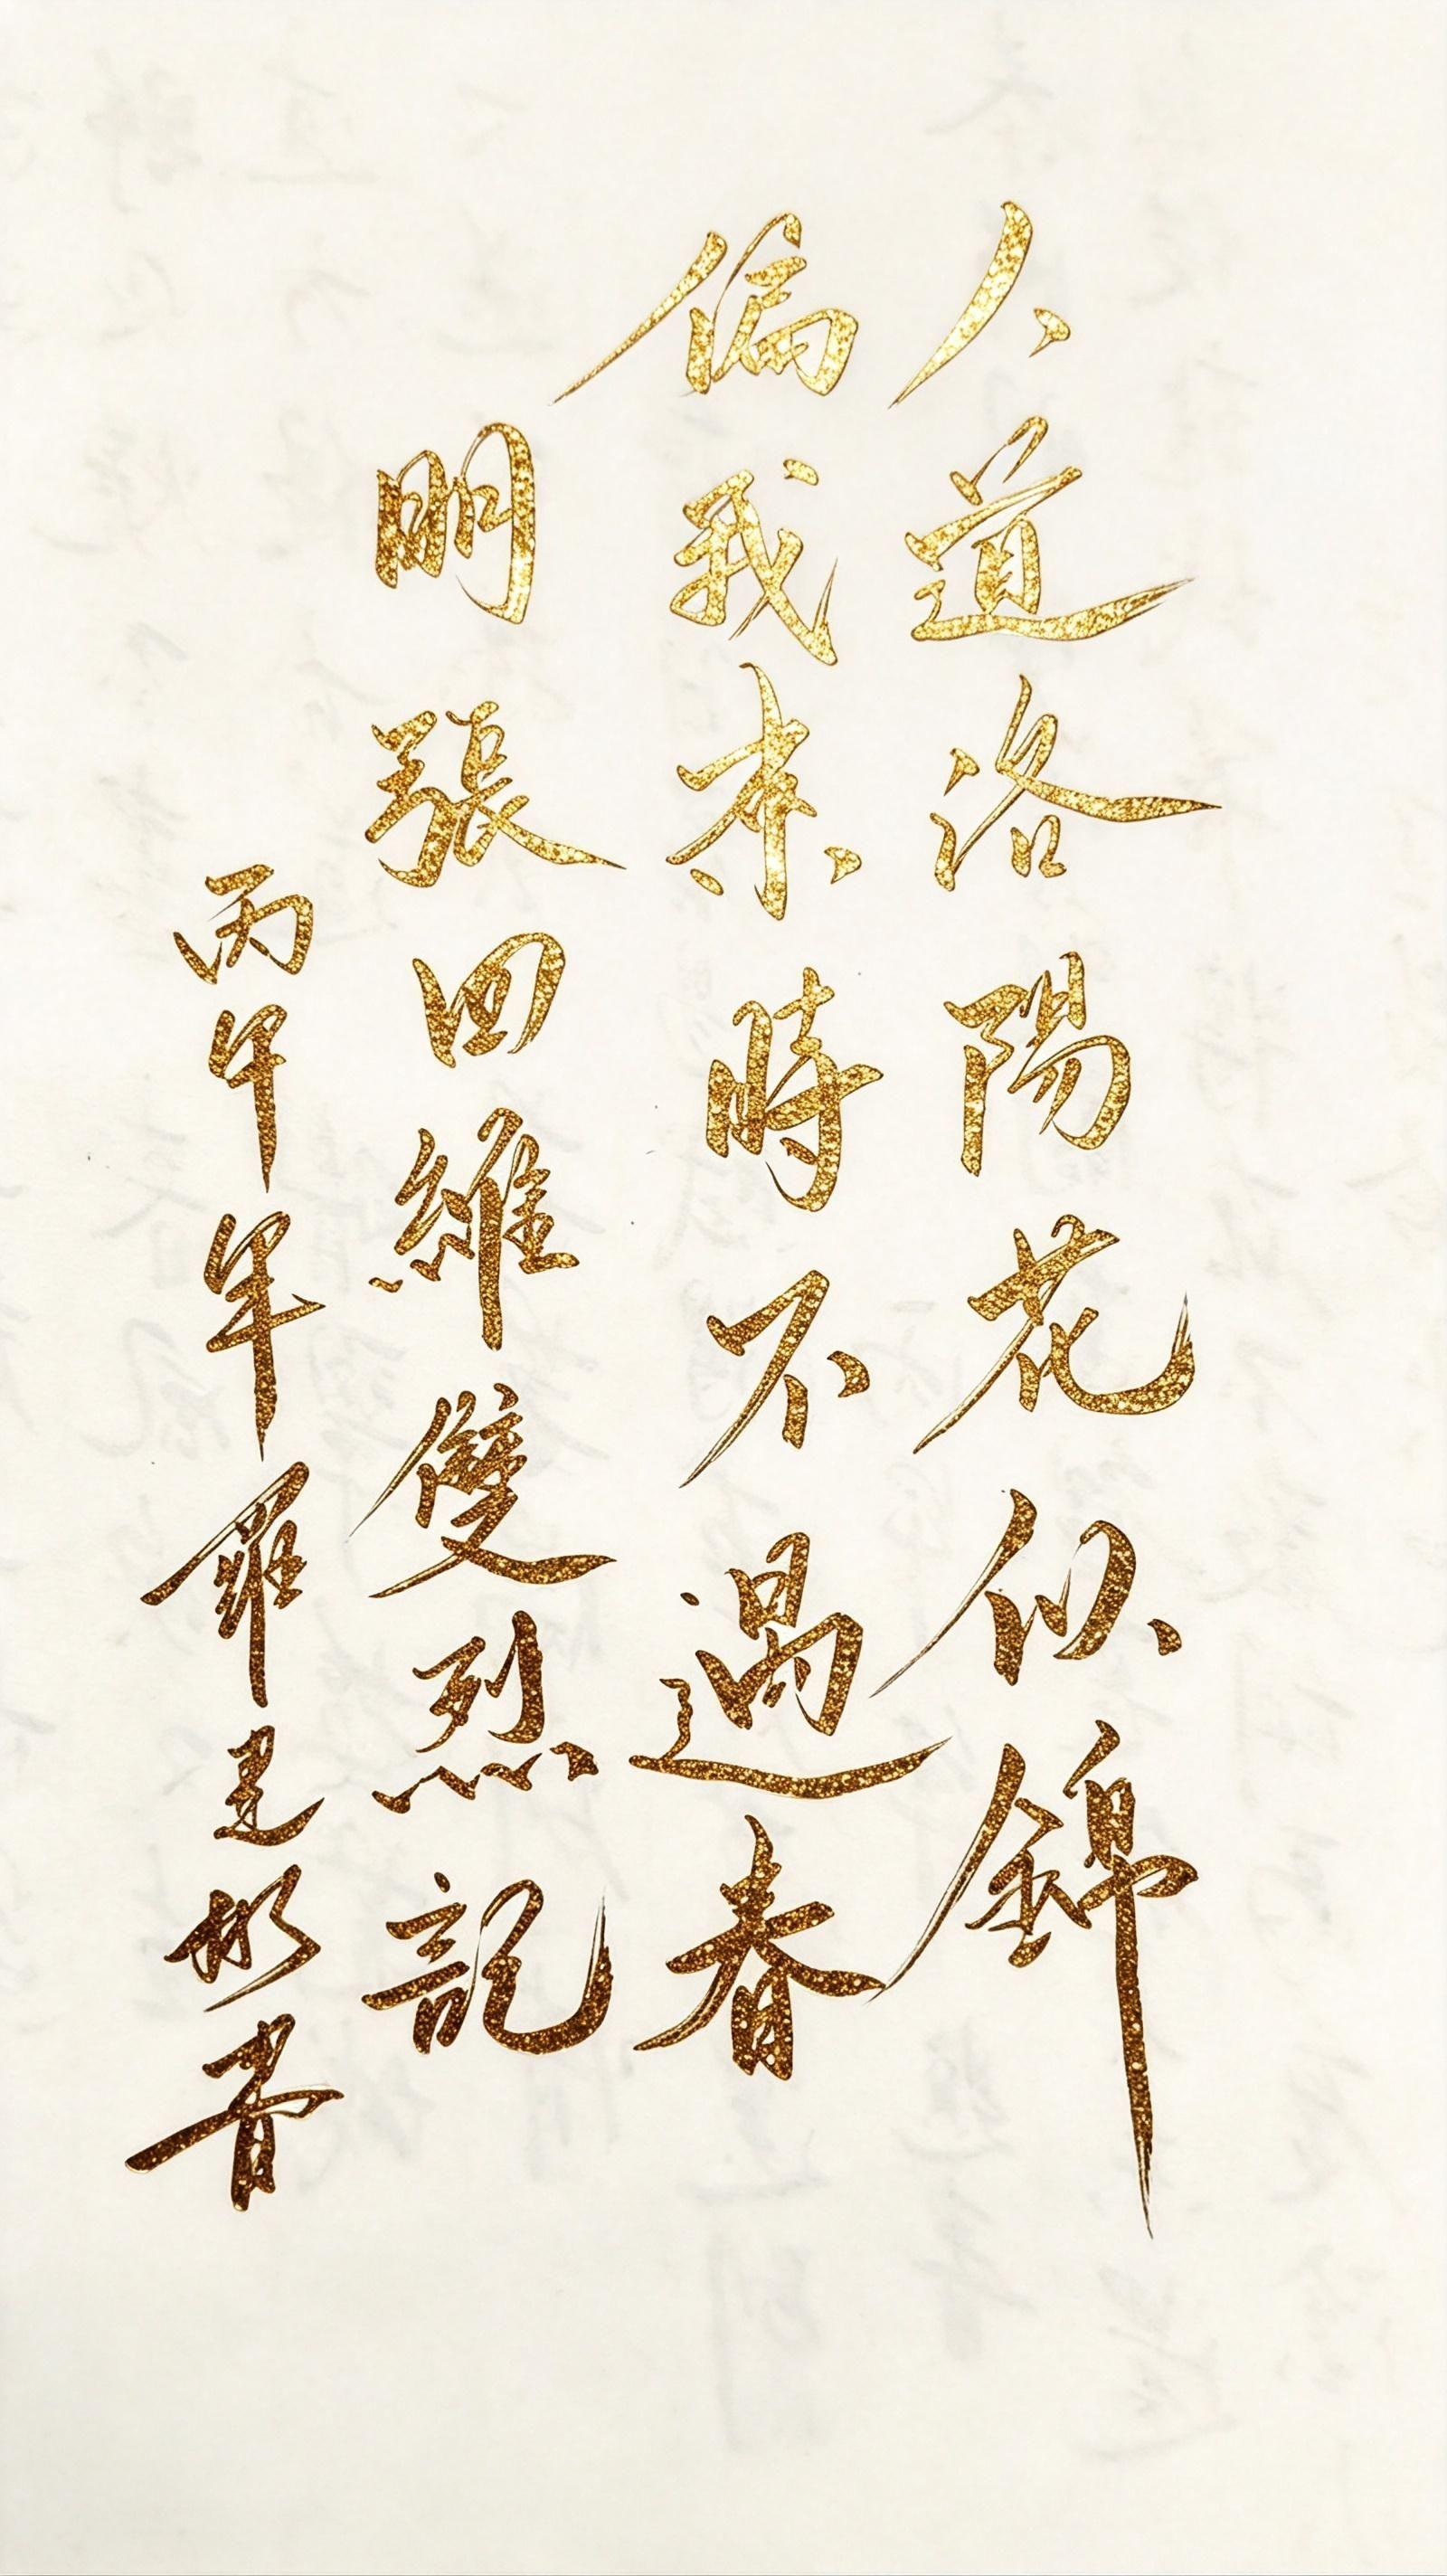 人道洛陽花似錦
偏我來時不遇春
明張四維雙烈記
丙午年羅建彬書